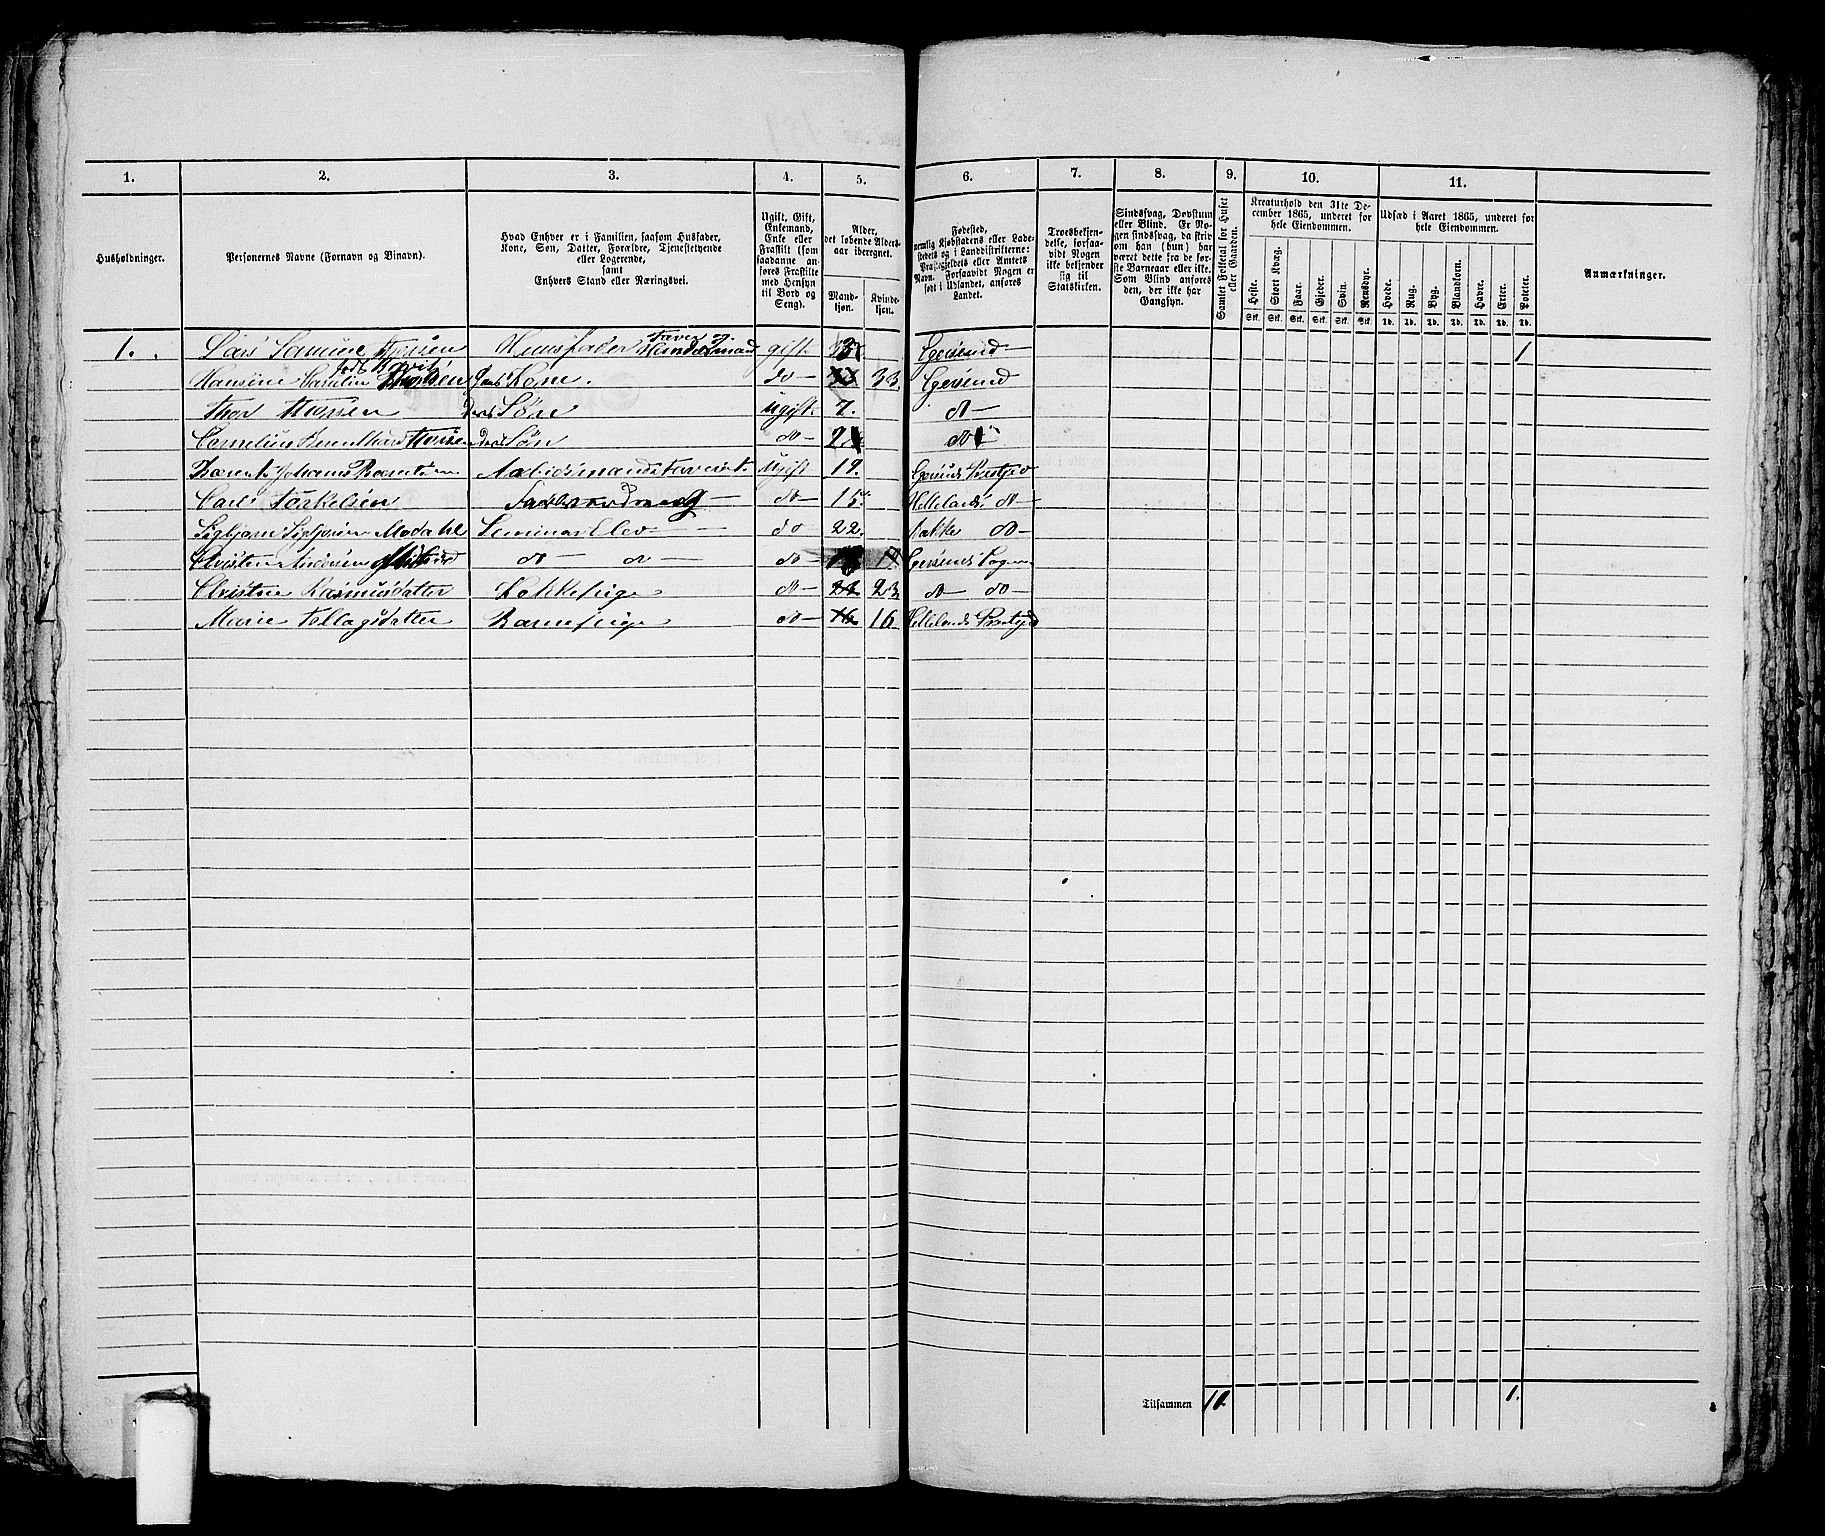 1. 2. 3. 4. 5. 6. 7. 8. 9. 10. 11.
Husholdninger.
Personernes Navne (Fornavn og Binavn).
Hvad Enhver er i Familien, saasom Husfader,
Kone, Søn, Datter, Forældre, Tjenestetyende
eller Logerende,
samt
Enhvers Stand eller Næringsvei.
Ugift, Gift,
Enkemand,
Enke eller
Fraskilt (som
saadanne an-
føres Fraskilte
med Hensyn
til Bord og
Seng).
Alder,
det løbende Alders-
aar iberegnet.
Mand-
kjøn.
Kvinde-
kjøn.
Fødested,
nemlig Kjøbstadens eller Lade-
stedets og i Landdistrikterne:
Præstegjeldets eller Amtets
Navn. Forsaavidt Nogen er
født i Udlandet, anføres
Landet.
Troesbekjen-
delse, forsaa-
vidt Nogen
ikke bekjender
sig til
Statskirken.
Sindssvag, Døvstum
eller Blind. Er No-
gen sindssvag, da skriv
om han (hun) har
været dette fra de før-
ste Barneaar eller ikke.
Som Blind anføres
den, der ikke har
Gangsyn.
Samlet Folketal for Huset
eller Gaarden.
Kreaturhold den 31te De-
cember 1865, underet for
hele Eiendommen.
Heste. Stort Kvæg. Faar. Gjeder. Svin. Rensdyr.
Stk. Stk. Stk. Stk. Stk. Stk.
Udsæd i Aaret 1865, underet for
hele Eiendommen.
Hvede. Rug. Byg. Blandkorn. Havre. Erter. Poteter.
Td. Td. Td. Td. Td. Td. Td.
Anmærkninger.
1. Lars Samuel Huusfader Farver og Handelsmand gift 33 Egersund 1
Hansine Carolin født Kone. do 33 Egersund
Thor deres Søn ugift 7. do
deres Søn do 2 do
Arbeidsmand Ugift 19. Egersunds Præstgjed
Carl Torkelsen do 15. Hellelands do
Sigbjørn Modahl Seminar Elev do 22. do
Christen do do do Egersunds Sogn
Christine Rasmusdatter Kokkepige do 23 do do
Marie Tollagsdatter Barnepige do 16 16 Hellelands Præstgjd
Tilsammen 10 1.